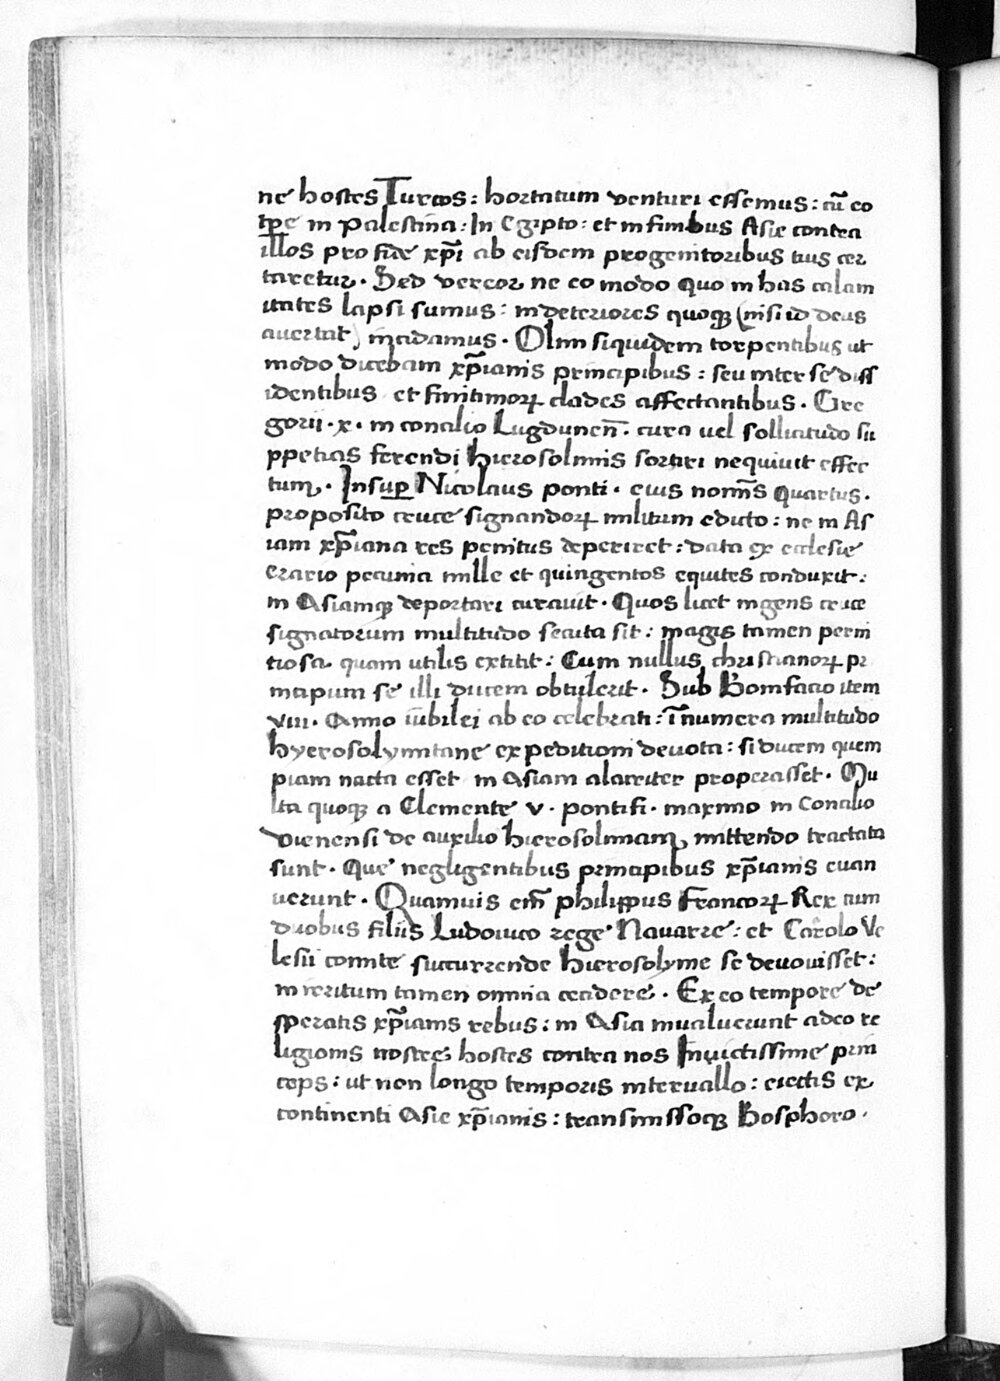 ne hostes Turcos: hortatum venturi essemus: cū eo
tp̄e in Palestina: In Egipto: et in finibus Asie contra
illos pro fide xp̄i ab eisdem progenitoribus tuis cer
taretur. Sed vereor ne eo modo quo in has calam
itates lapsi sumus: in deteriores quoqꝫ (nisi id deus
avertat) incidamus. Olim siquidem torpentibus ut
modo dicebam xp̄ianis principibus: seu inter se diss
identibus et finitimorꝝ clades affectantibus. Gre
gorii. x. in concilio Lugdunen̄. cura vel sollicitudo su
ppetias ferendi hierosolimis sortiri nequivit effec
tum. Insup̲ Nicolaus ponti. eius nomīs quartus.
proposito cruce signandorꝝ militum edicto: ne in As
iam xp̄iana res penitus deperiret: data ex ecclesie
erario pecunia mille et quingentos equites conduxit:
in Asiamqꝫ deportari curavit. Quos licet ingens cruce
signatorum multitudo secuta sit: magis tamen perni
tiosa quam utilis extitit: Cum nullus christianorꝝ pr
incipum se illi ducem obtulerit. Sub Bonifacio item
viii. Anno iubilei ab eo celebrati: īnumera multitudo
hyerosolymitane expeditioni devota: si ducem quem
piam nacta esset in Asiam alacriter properasset. Mu
lta quoqꝫ a Clemente v. pontifi. maximo in Concilio
vienensi de auxilio hierosolimam mittendo tractata
sunt. Que negligentibus principibus xp̄ianis evan
uerunt. Quamuis em̄ philippus Francorꝝ Rex cum
duobus filiis Ludovico rege Navarre: et Carolo Va
lesii comite succurrende hierosolyme se devovisset:
in irritum tamen omnia cecidere. Ex eo tempore de
speratis xp̄ianis rebus: in Asia invaluerunt adeo re
ligionis nostre hostes contra nos Invictissime prin
ceps: ut non longo temporis intervallo: eiectis ex
continenti Asie xp̄ianis: transmissoqꝫ Bosphoro.